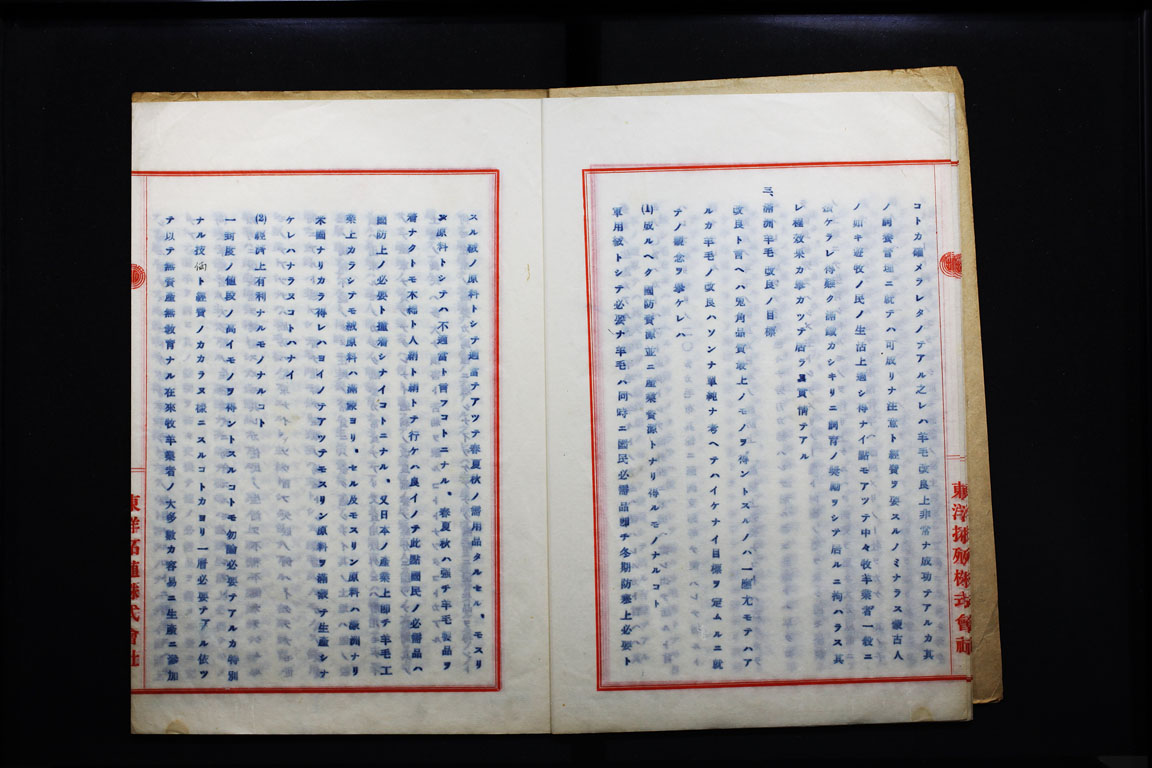 コトカ確メラレタノテアル之レハ羊毛改良上非常ナ成功テアルカ其
ノ飼養管理ニ就テハ可成リナ注意ト經費ヲ要スルノミナラス蒙古人
ノ如キ遊牧ノ民ノ生活上適シ得ナイ點モアツテ中々牧羊業者一般ニ
ケラレ得難ク滿鐵カシキリニ飼育ノ奬勵ヲシテ居ルニ拘ハラス其
レ程效果カ擧カツテ居ラヌ實情テアル
三、滿洲羊毛改良ノ目標
改良ト言ヘハ兎角品質最上ノモノヲ得ントスルノハ一應尤モテハア
ルカ羊毛ノ改良ハソンナ單純ナ考ヘテハイケナイ目標ヲ定ムルニ就
テノ觀念ヲ擧ケレハ
(1)成ルヘク國防資源並ニ産業資源トナリ得ルモノナルコト
軍用絨トシテ必要ナ羊毛ハ同時ニ國民必需品卽チ冬期防寒上必要ト
東洋拓殖株式會社
スル絨ノ原料トシテ適當テアツテ春夏秋ノ需用品タルセル、モスリ
ヌ原料トシテハ不適當ト言フコトニナル、春夏秋ハ強チ羊毛製品ヲ
着ナクトモ木棉ト人絹ト絹トテ行ケハ良イノテ此點國民ノ必需品ハ
國防上ノ必要ト撞着シナイコトニナル、又日本ノ産業上卽チ羊毛工
業上カラシテモ絨原料ハ滿蒙ヨリ、セル及モスリン原料ハ濠洲ナリ
米國ナリカラ得レハヨイノテアツテモスリン原料ヲ滿蒙テ生産シナ
ケレハナラヌコトハナイ
(2)經濟上有利ナルモノナルコト
一封度ノ値段ノ高イモノヲ得ントスルコトモ勿論必要テアルカ特別
ナル技倆ト經費ノカカラヌ樣ニスルコトカヨリ一層必要テアル依ツ
テ以テ無資産無敎育ナル在來牧羊業者ノ大多數カ容易ニ生産ニ參加
東洋拓殖株式會社